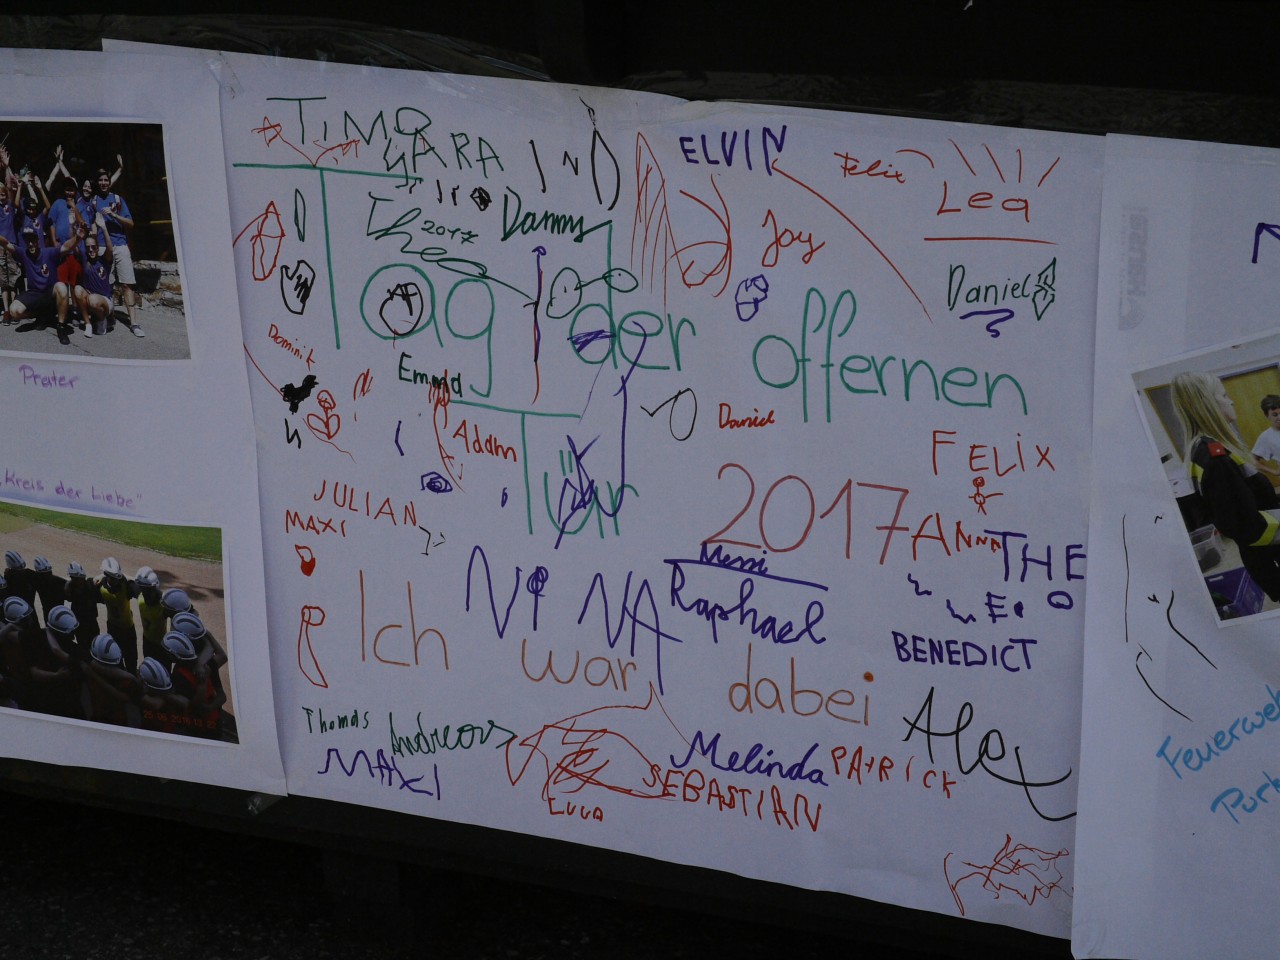 Prater
„Kreis der Liebe"
TiMO
SARA
ELVIN
Felix
Lea
Theo
2017
Danny
Joy
Daniel
Tag der offernen
Dominik
Emma
Daniel
Adam
FELIX
Tür
2017
JULIAN
MAXI
ANNA
THEO
Messi
NiNA
Raphael
BENEDICT
Ich war dabei
Thomas
Andreas
Alex
MAXI
Melinda
PATRICK
SEBASTIAN
Luca
Feuerweh